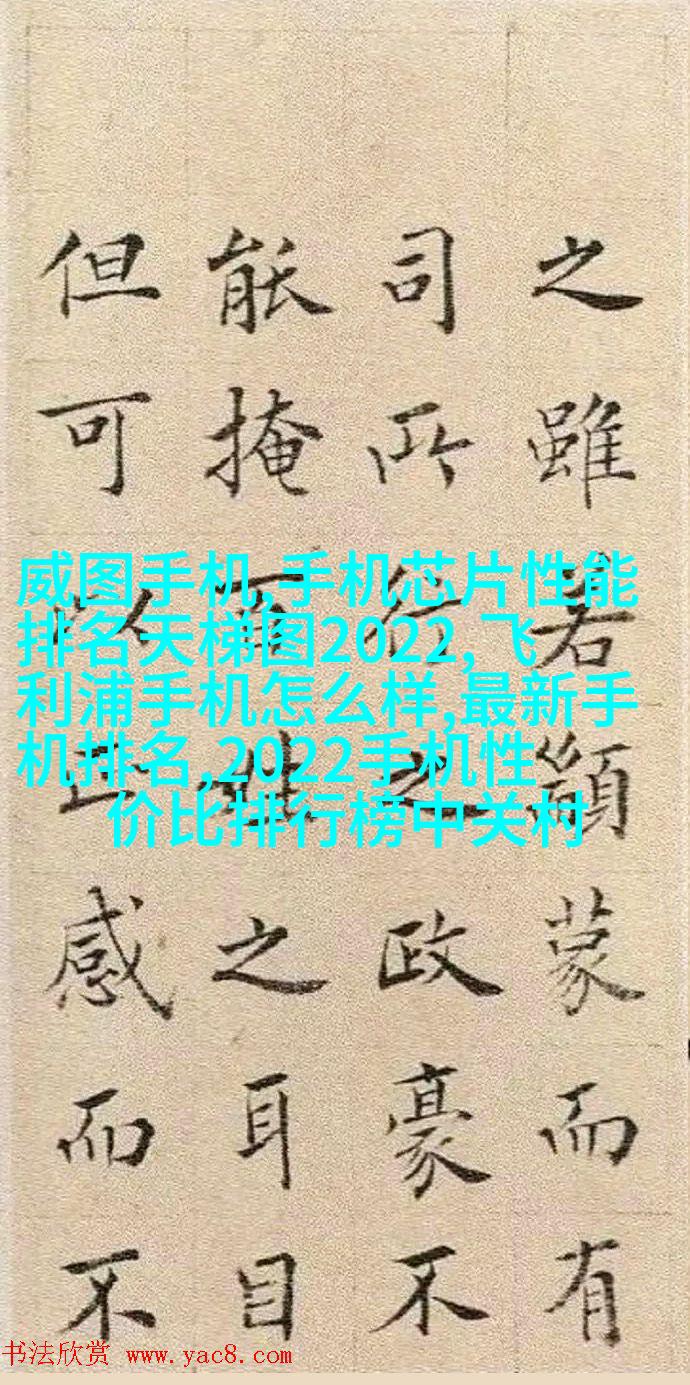 之雖若顓蒙而有
司所行之政豪不
能掩百姓之耳目
但可以正感而不
威图手机,手机芯片性能
排名天梯图2022,飞
利浦手机怎么样,最新手
机排名,2022手机性
价比排行榜中关村
书法欣赏 www.yac8.com